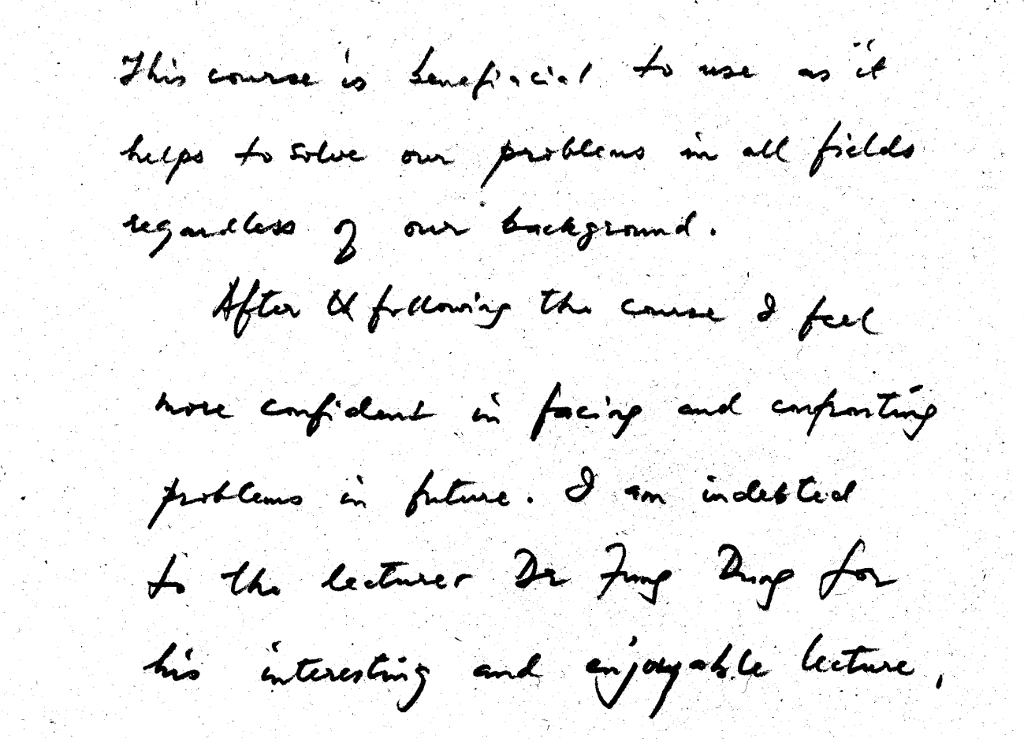 This course is beneficial to use as it
helps to solve our problems in all fields
regardless of our background.
After following the course I feel
more confident in facing and confronting
problems in future. I am indebted
to the lecturer Dr Fung Dung for
his interesting and enjoyable lecture,